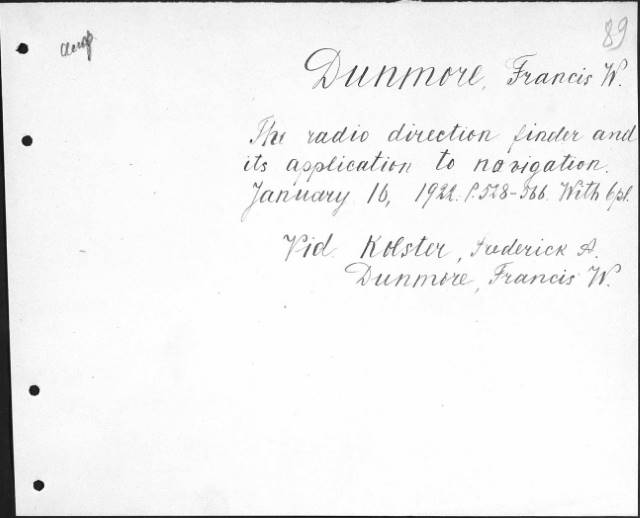 89
Dunmore, Francis W.
The radio direction finder and
its application to navigation.
January 16, 1922. P. 528-566. With 6 pl.
Vid. Kolster, Frederick A.
Dunmore, Francis W.